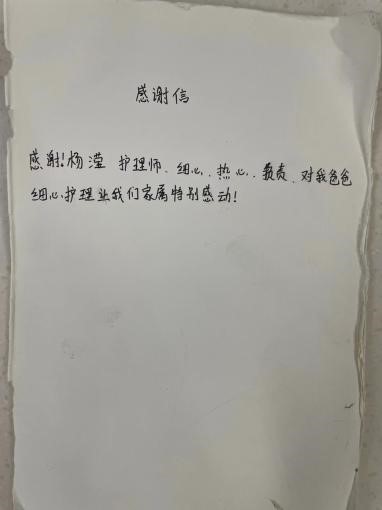 感谢信
感谢!杨滢 护理师、细心、热心、负责、对我爸爸
细心护理让我们家属特别感动!